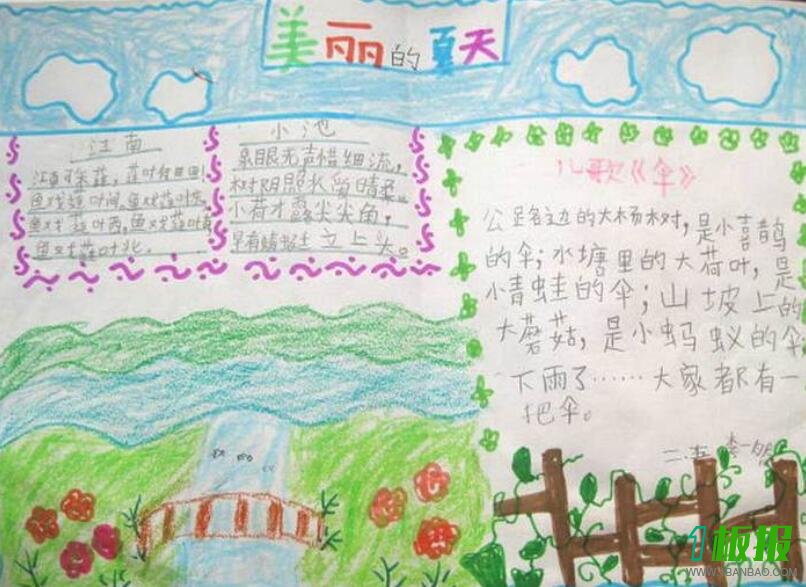 美丽的夏天
江南
江南可采莲,莲叶何田田
鱼戏莲叶间,鱼戏莲叶东,
鱼戏莲叶西,鱼戏莲叶南
鱼戏莲叶北.
小池
泉眼无声惜细流,
树阴照水留晴柔。
小荷才露尖尖角,
早有蜻蜓立上头。
儿歌《伞》
公路边的大杨树,是小喜鹊
的伞;水塘里的大荷叶,是
小青蛙的伞;山坡上的
大蘑菇,是小蚂蚁的伞
下雨了……大家都有一
把伞。
板报
WWW.SBANBAO.COM